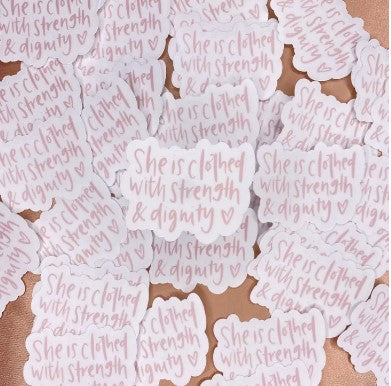 She is clothed
with strength
& dignity ♡